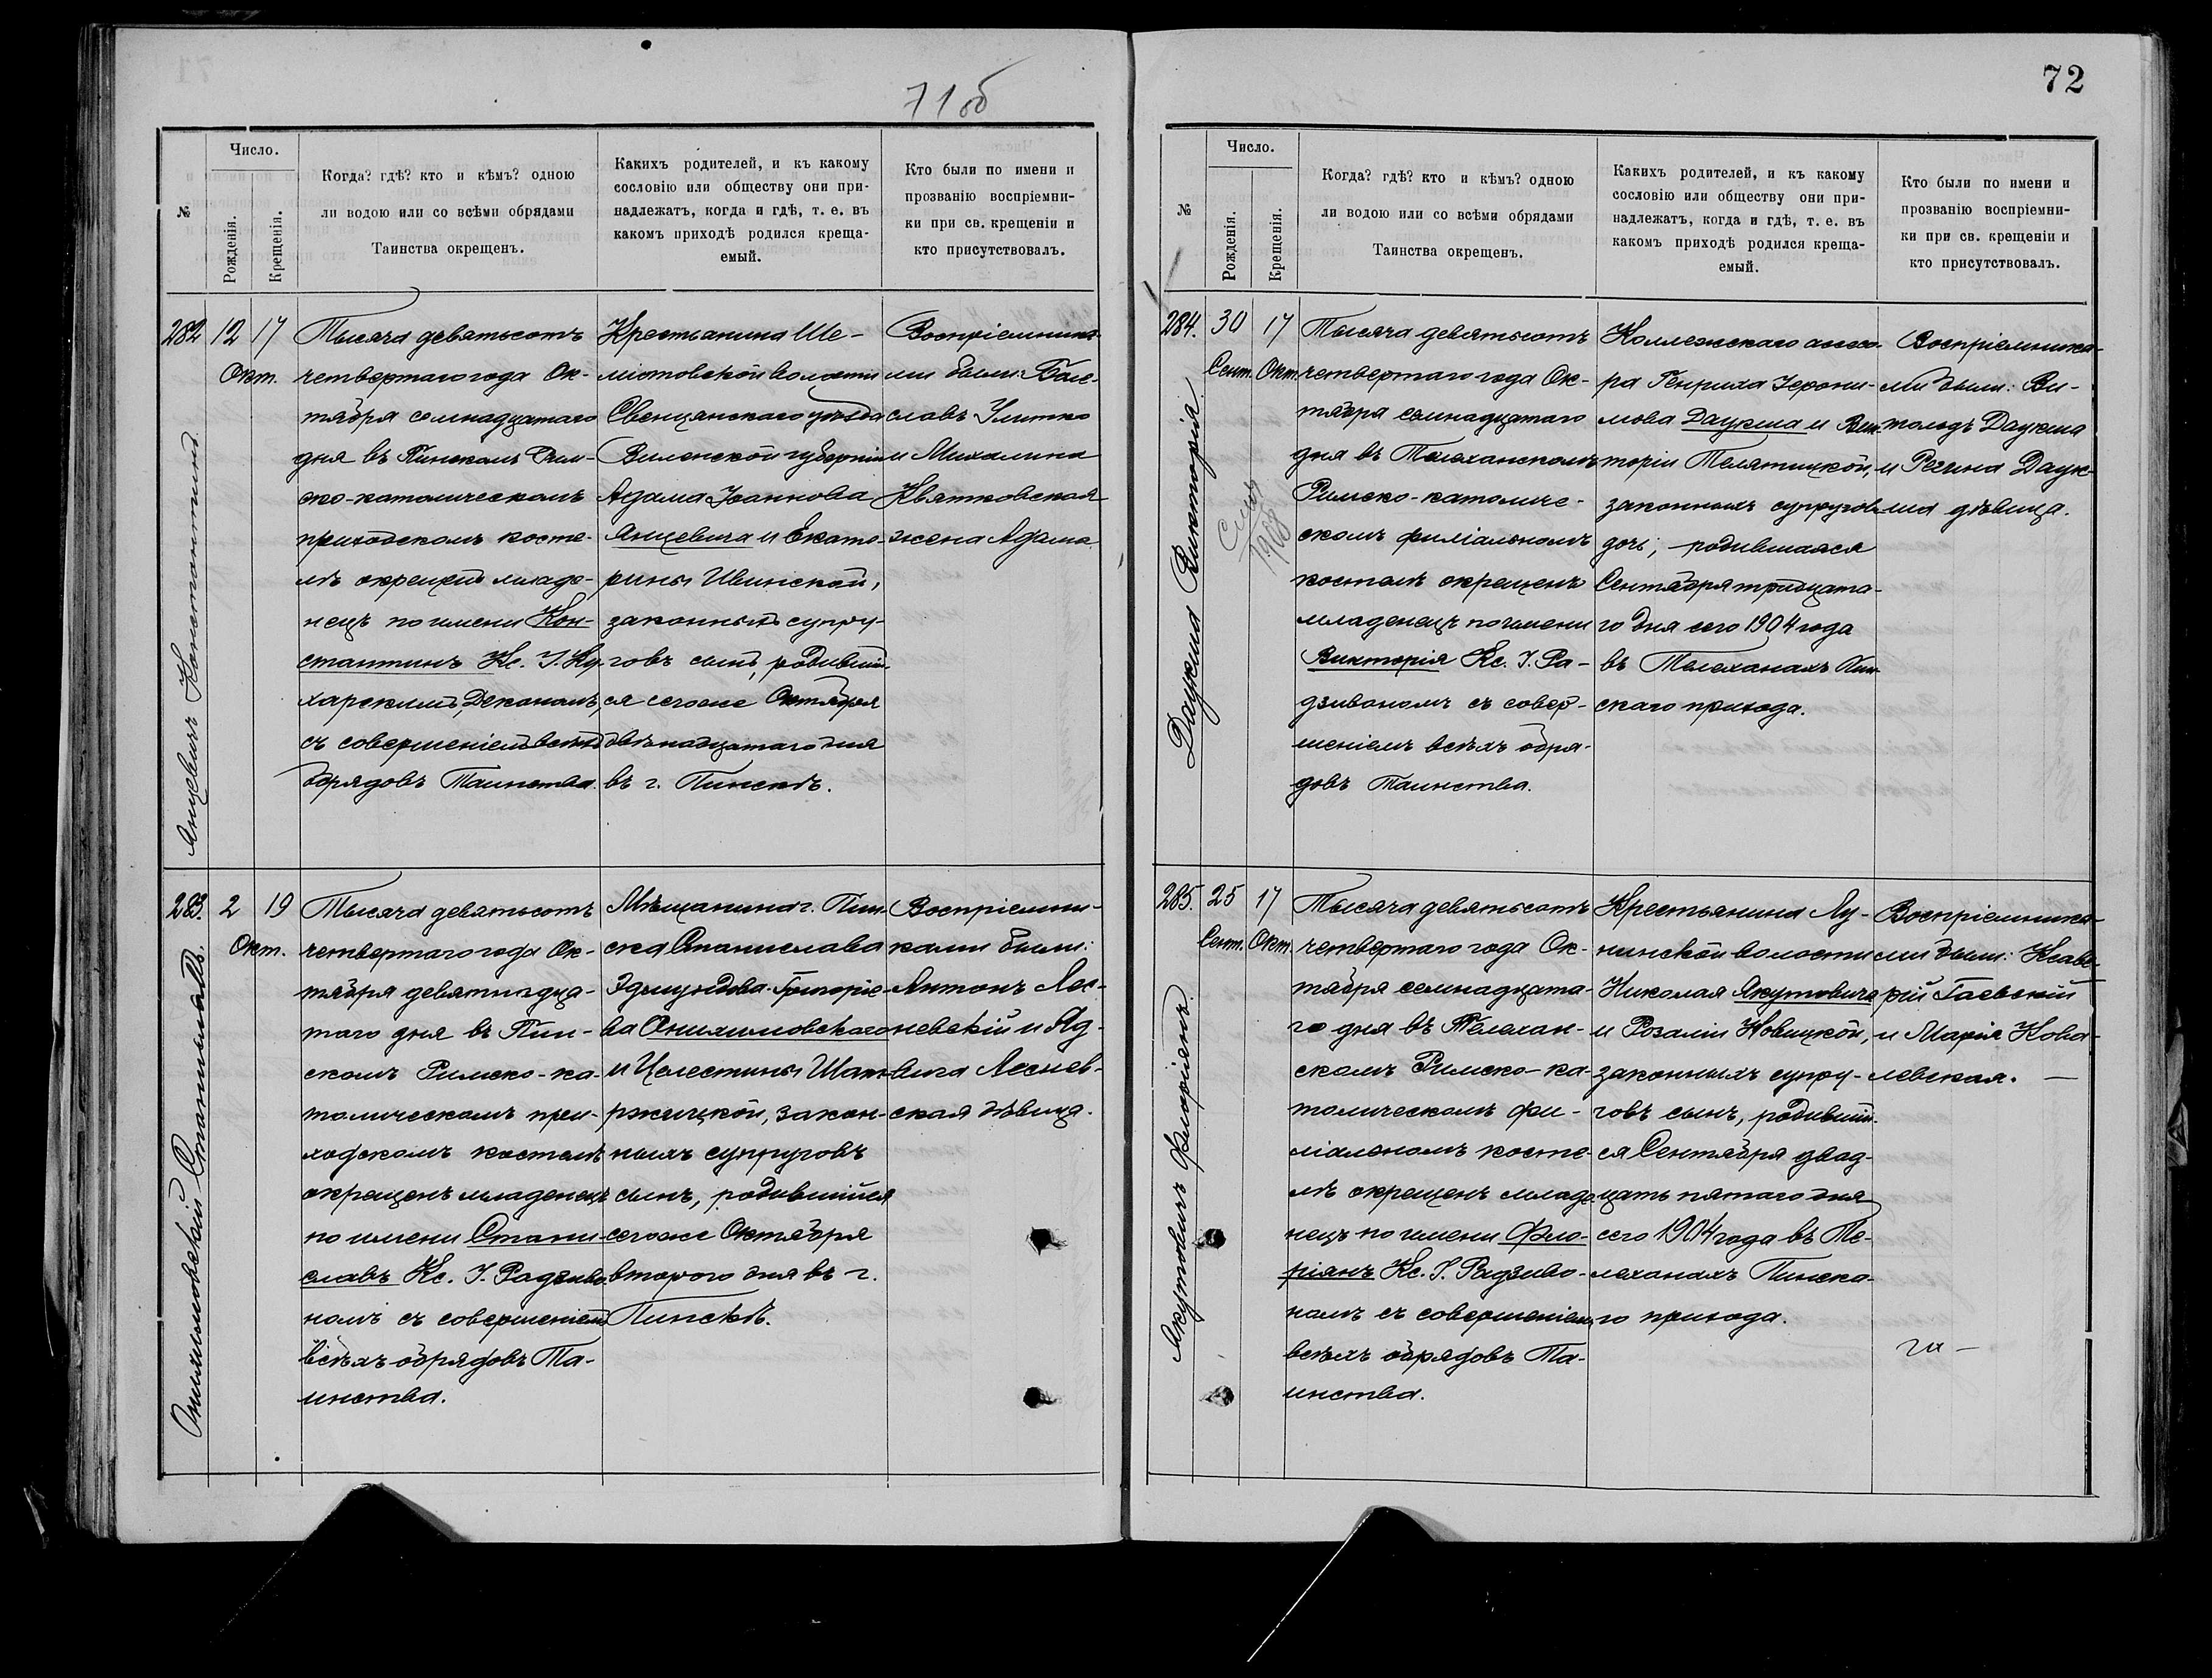 71об
Число.
№
Рожденія.
Крещенія.
Когда? гдѣ? кто и кѣмъ? одною
ли водою или со всѣми обрядами
Таинства окрещенъ.
Какихъ родителей, и къ какому
сословію или обществу они при-
надлежатъ, когда и гдѣ, т. е. въ
какомъ приходѣ родился креща-
емый.
Кто были по имени и
прозванію воспріемни-
ки при св. крещеніи и
кто присутствовалъ.
282
Янцевичъ Константинъ
12 17
Окт.
Тысяча девятьсотъ
четвертаго года Ок-
тября семнадцатаго
дня въ Пинскомъ Рим-
ско-католическомъ
приходскомъ косте-
лѣ окрещенъ младе-
нецъ по имени Кон-
стантинъ Кс. I. Ку-
харскимъ, Деканомъ,
съ совершеніемъ всѣхъ
обрядовъ Таинства.
Крестьянина Ше-
метовской волости
Свенцянскаго уѣзда
Виленской губерніи
Адама Іоаннова
Янцевича и Екате-
рины Ивинской,
законныхъ супру-
говъ сынъ, родивший-
ся сегоже Октября
двѣнадцатаго дня
въ г. Пинскѣ.
Воспріемника-
ми были: Боле-
славъ Улитко
и Михалина
Квятковская
жена Адама
283.
Онихимовскій Станиславъ.
2 19
Окт.
Тысяча девятьсотъ
четвертаго года Ок-
тября девятнадца-
таго дня въ Пин-
скомъ Римско-ка-
толическомъ при-
ходскомъ костелѣ
окрещенъ младенецъ
по имени Стани-
славъ Кс. I. Радзиво-
номъ съ совершеніемъ
всѣхъ обрядовъ Та-
инства.
Мѣщанина г. Пин-
ска Станислава
Эдмундова-Григорье-
ва Онихимовскаго
и Целестины Шат-
ржицкой, закон-
ныхъ супруговъ
сынъ, родившийся
сегоже Октября
второго дня въ г.
Пинскѣ.
Воспріемни-
ками были:
Антонъ Лес-
невскій и Яд-
вига Леснев-
ская дѣвица.
72
Число.
№
Рожденія.
Крещенія.
Когда? гдѣ? кто и кѣмъ? одною
ли водою или со всѣми обрядами
Таинства окрещенъ.
Какихъ родителей, и къ какому
сословію или обществу они при-
надлежатъ, когда и гдѣ, т. е. въ
какомъ приходѣ родился креща-
емый.
Кто были по имени и
прозванію воспріемни-
ки при св. крещеніи и
кто присутствовалъ.
284.
Даукша Викторія
30 17
Сент. Окт.
1908
Тысяча девятьсотъ
четвертаго года Ок-
тября семнадцатаго
дня въ Телеханскомъ
Римско-католиче-
скомъ филіальномъ
костелѣ окрещенъ
младенецъ по имени
Викторія Кс. I. Ра-
дзивономъ съ совер-
шеніемъ всѣхъ обря-
довъ Таинства.
Коллежскаго ассесо-
ра Генриха Іерони-
мова Даукша и Вик-
торіи Телятицкой,
законныхъ супруговъ
дочь, родившаяся
Сентября тридцата-
го дня сего 1904 года
въ Телеханахъ Пин-
скаго прихода.
Воспріемника-
ми были: Ви-
тольдъ Даукша
и Регина Даук-
ша дѣвица.
285.
Якутовичъ Флоріянъ.
25 17
Сент. Окт.
Тысяча девятьсотъ
четвертаго года Ок-
тября семнадцата-
го дня въ Телехан-
скомъ Римско-ка-
толическомъ фи-
ліальномъ косте-
лѣ окрещенъ младе-
нецъ по имени Фло-
ріянъ Кс. I. Радзиво-
номъ съ совершеніемъ
всѣхъ обрядовъ Та-
инства.
Крестьянина Лу-
нинской волости
Николая Якутовича
и Розаліи Новицкой,
законныхъ супру-
говъ сынъ, родивший-
ся Сентября двад-
цать пятаго дня
сего 1904 года въ Те-
леханахъ Пинска-
го прихода.
Воспріемника-
ми были: Ксаве-
рій Гаевскій
и Марія Кова-
левская. —